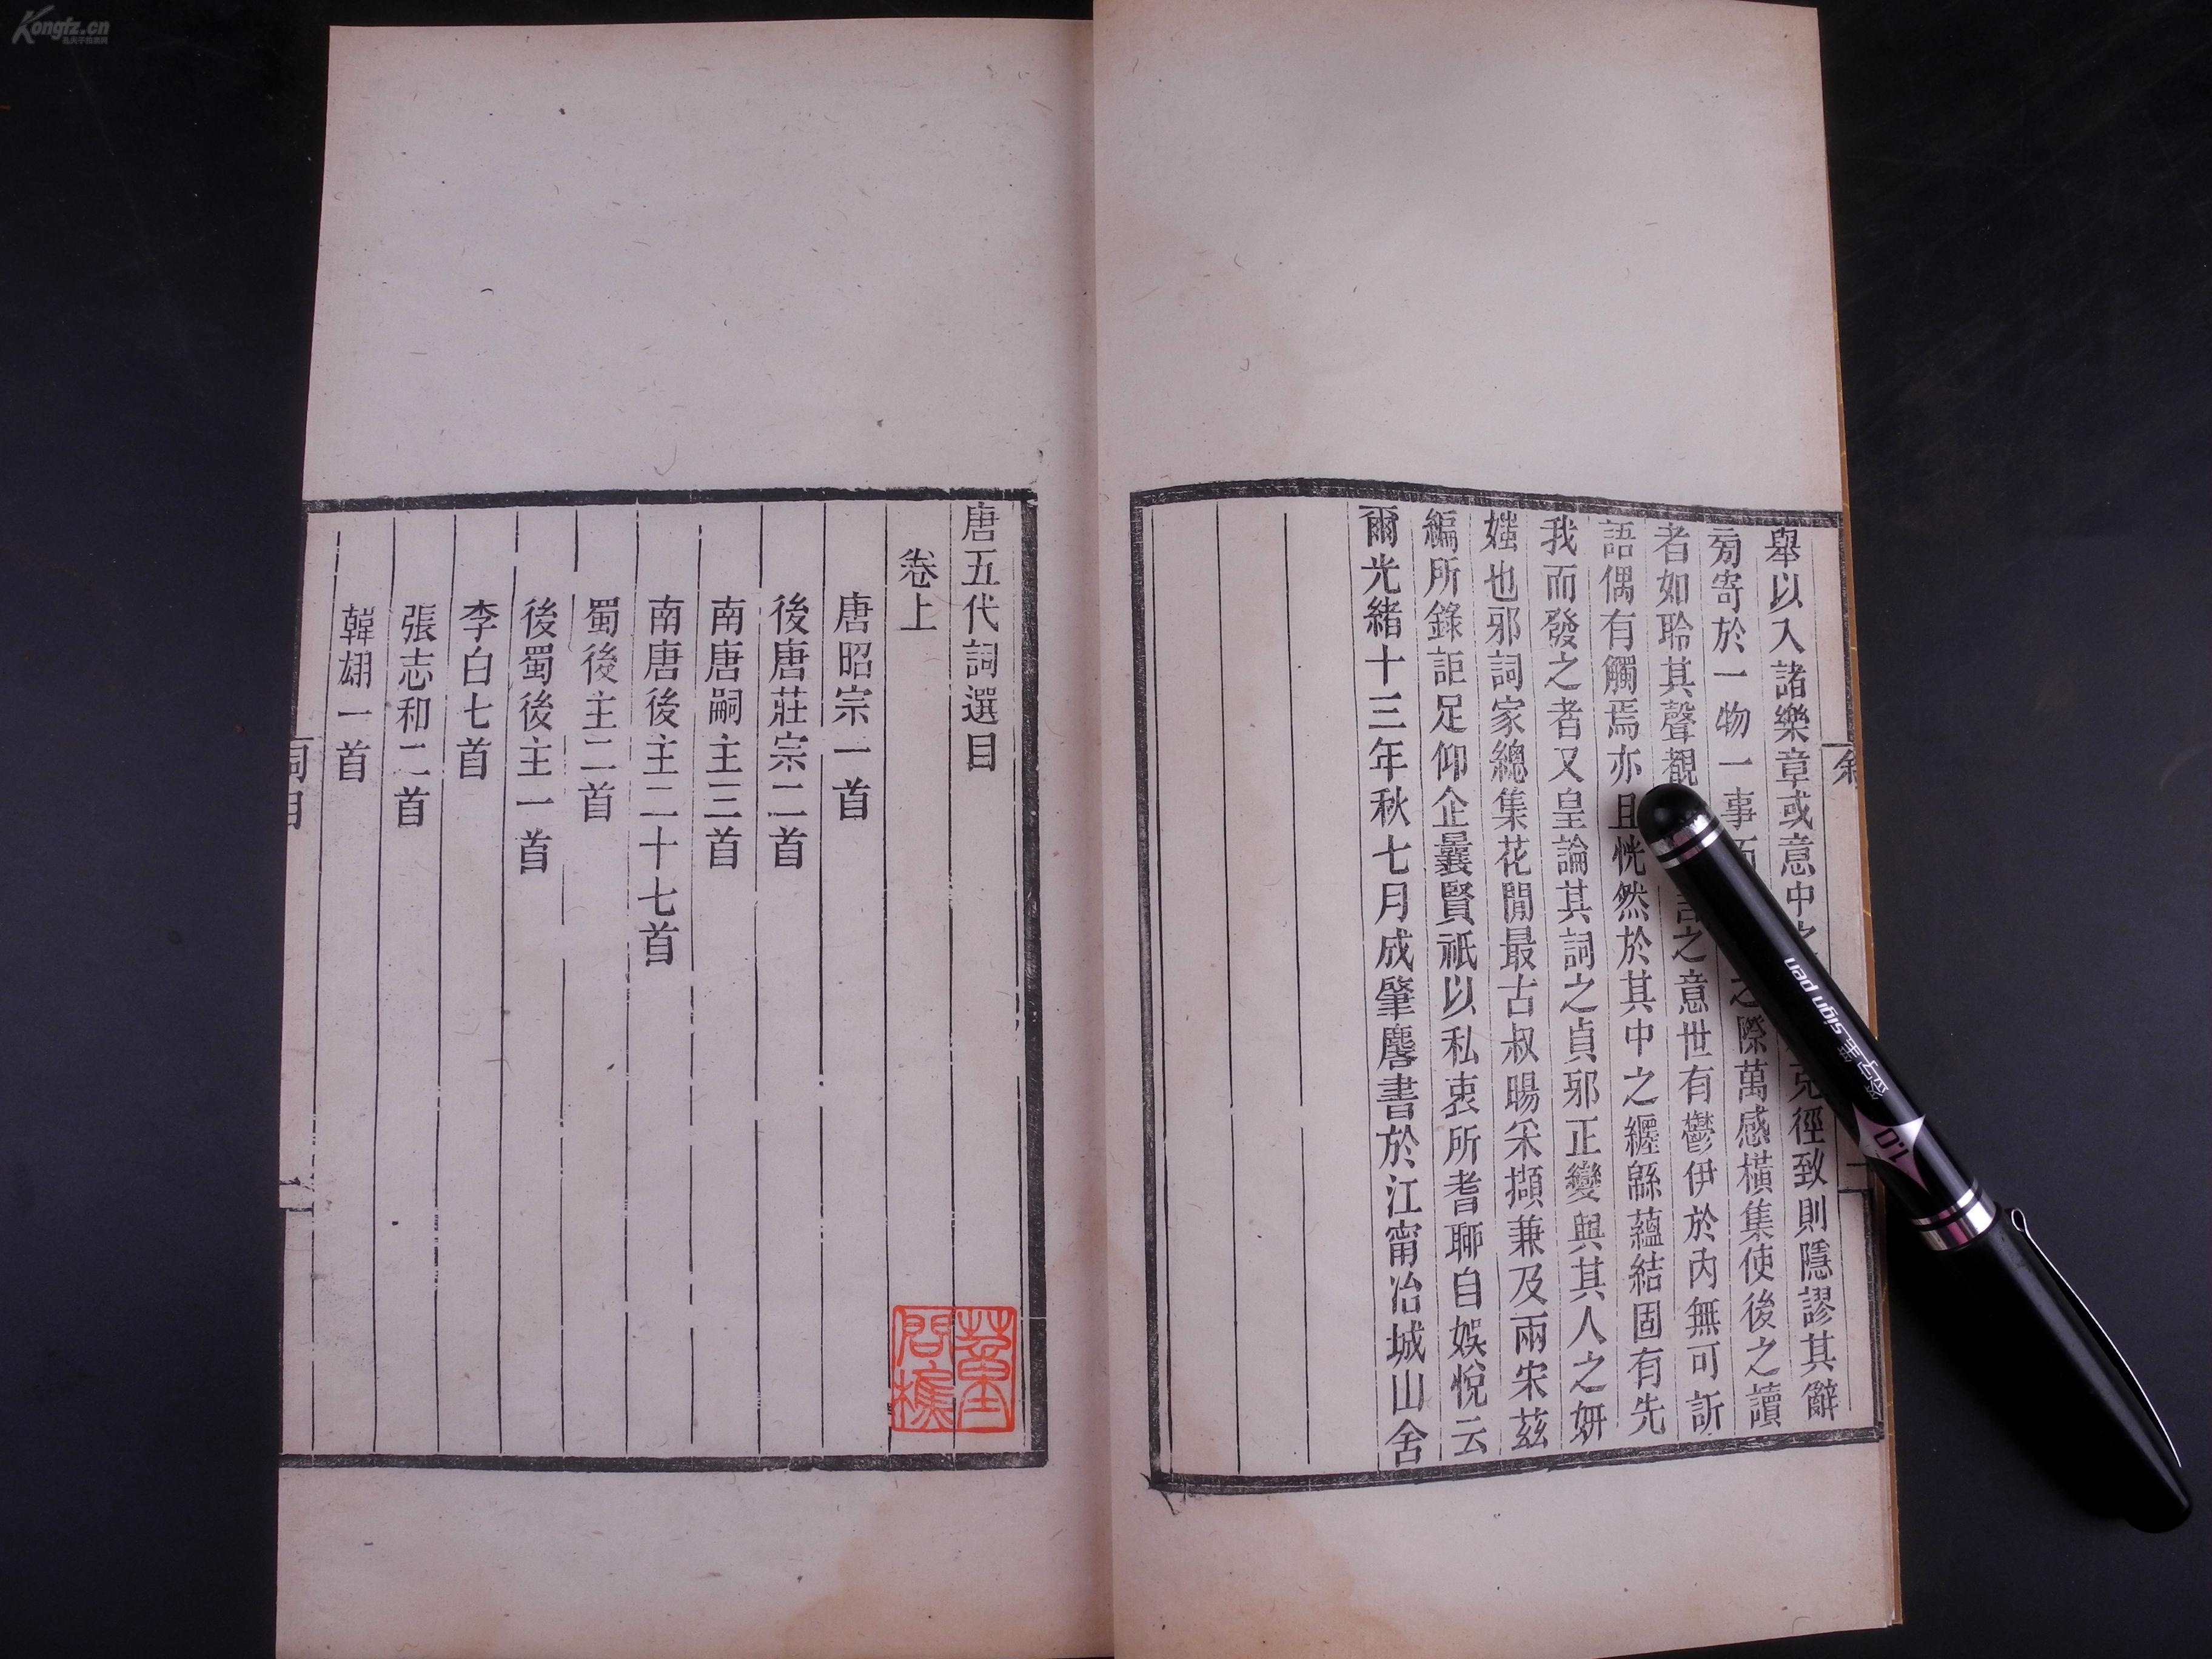 舉以入諸樂章或意中之 克徑致則隱謬其辭
旁寄於一物一事而 之際萬感橫集使後之讀
者如聆其聲觀 言之意世有鬱伊於內無可訴
語偶有觸焉亦且恍然於其中之纏緜蘊結固有先
我而發之者又皇論其詞之貞邪正變與其人之妍
媸也邪詞家總集花閒最古叔暘采擷兼及兩宋茲
編所錄詎足仰企曩賢祇以私衷所耆聊自娛悅云
爾光緒十三年秋七月成肇麐書於江甯冶城山舍
唐五代詞選目
卷上
唐昭宗一首
後唐莊宗二首
南唐嗣主三首
南唐後主二十七首
蜀後主二首
後蜀後主一首
李白七首
張志和二首
韓翃一首
詞目
一
Kongfz.cn
孔夫子舊書网
签字笔 sign pen
1.0